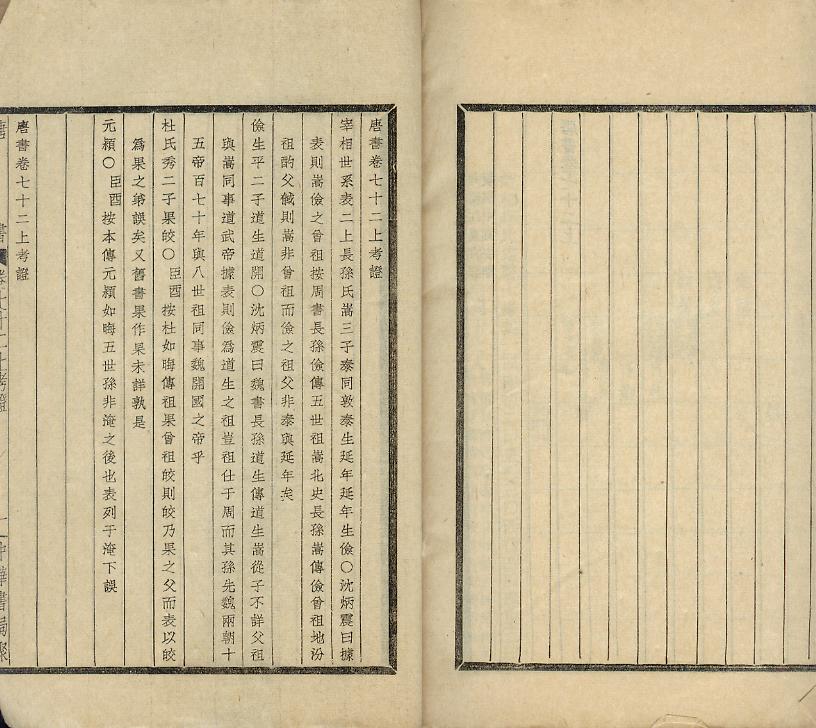 唐書卷七十二上考證
宰相世系表二上長孫氏嵩三子泰同敦泰生延年延年生儉〇沈炳震曰據
表則嵩儉之曾祖按周書長孫儉傳五世祖嵩北史長孫嵩傳儉曾祖地汾
祖酌父馘則嵩非曾祖而儉之祖父非泰與延年矣
儉生平二子道生道開〇沈炳震曰魏書長孫道生傳道生嵩從子不詳父祖
與嵩同事道武帝據表則儉為道生之祖豈祖仕于周而其孫先魏兩朝十
五帝百七十年與八世祖同事魏開國之帝乎
杜氏秀二子果皎〇臣酉按杜如晦傳祖果曾祖皎則皎乃果之父而表以皎
為果之弟誤矣又舊書果作杲未詳孰是
元穎〇臣酉按本傳元穎如晦五世孫非淹之後也表列于淹下誤
唐書卷七十二上考證
唐書 卷七十二上考證 一 中華書局聚